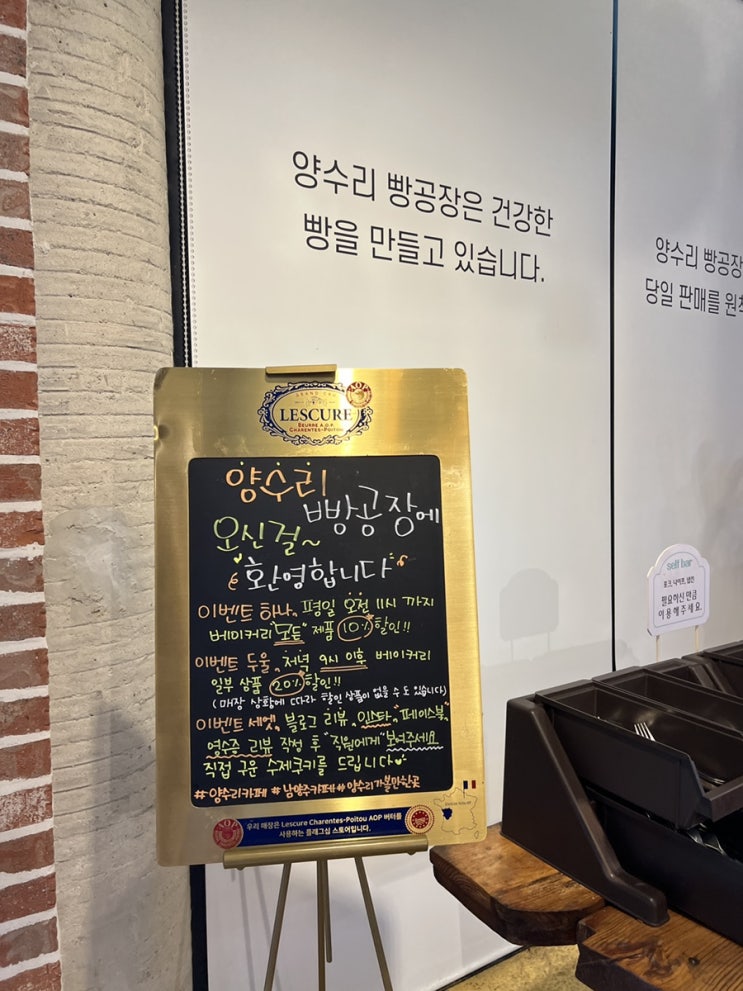 양수리 빵공장은 건강한
빵을 만들고 있습니다.
양수리 빵공장
당일 판매를 원칙
GRAND CRU
LESCURE
BEURRE A.O.P.
CHARENTES-POITOU
양수리
빵공장에
오신걸~
환영합니다
이벤트 하나. 평일 오전 11시 까지
베이커리 "모든" 제품 10% 할인!!
이벤트 두울. 저녁 9시 이후 베이커리
일부 상품 20% 할인!!
(매장 상황에 따라 할인 상품이 없을 수도 있습니다)
이벤트 세엣. 블로그 리뷰, 인스타, "페이스북,
영수증 리뷰 작성 후 "직원에게" 보여주세요
직접 구운 수제쿠키를 드립니다
#양수리카페 #남양주카페 #양수리가볼만한곳
우리 매장은 Lescure Charentes-Poitou AOP 버터를
사용하는 플래그십 스토어입니다.
self bar
포크, 나이프, 냅킨
필요하신 만큼
이용해주세요.